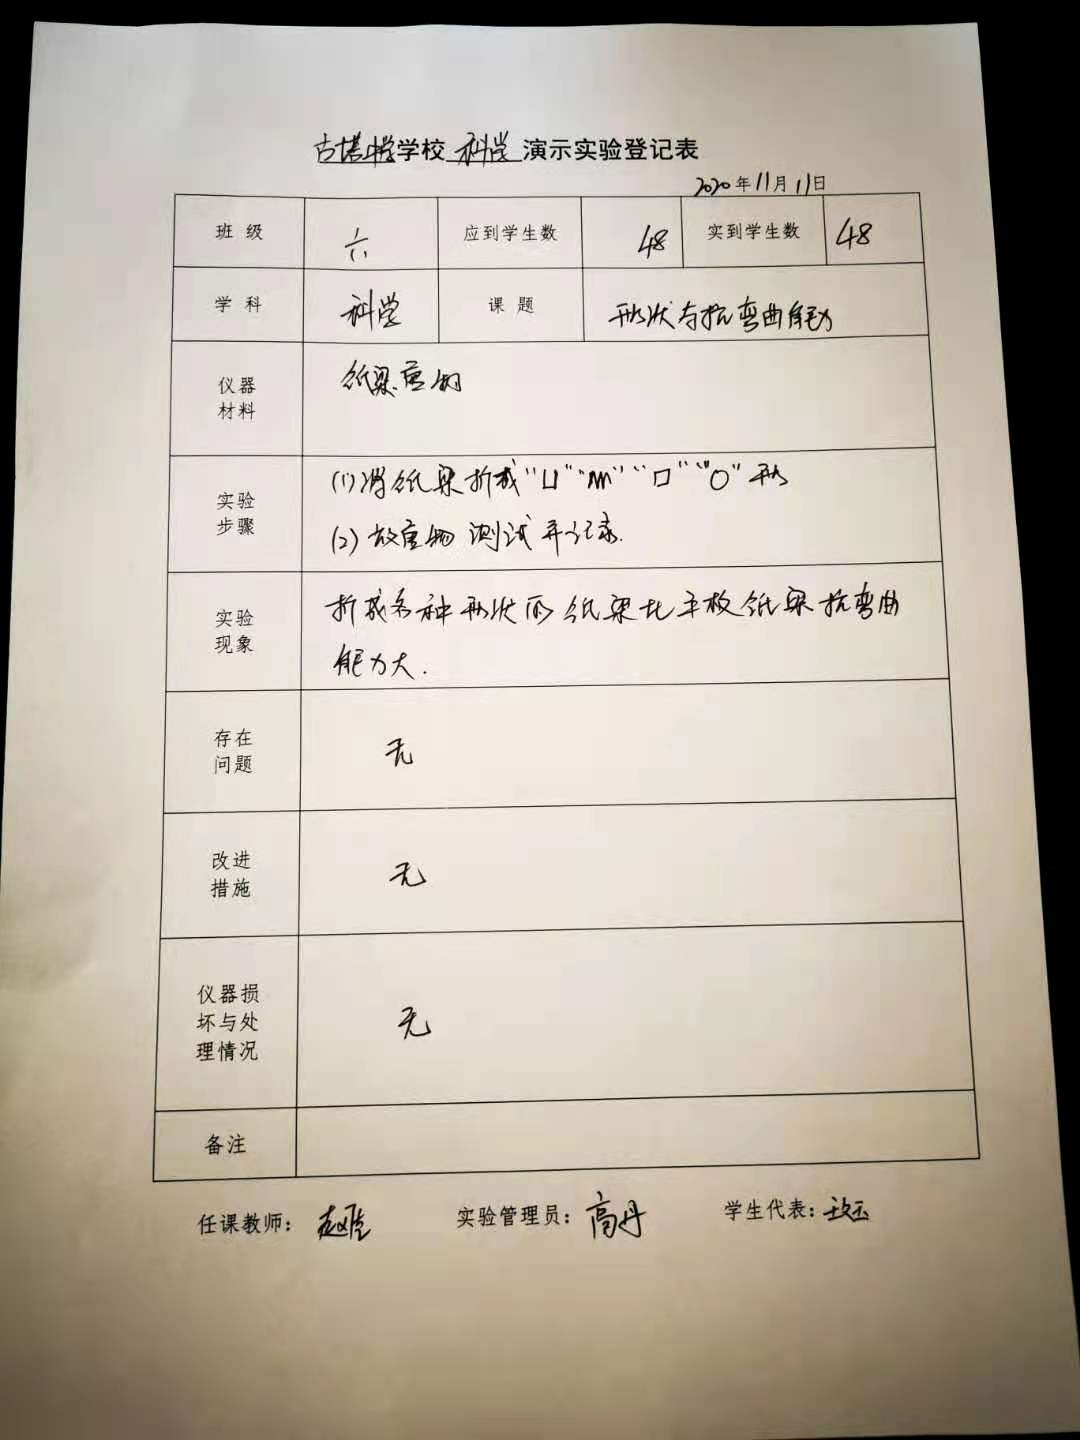 古塔中学学校 科学 演示实验登记表
2020年11月11日
班 级 六 应到学生数 48 实到学生数 48
学 科 科学 课 题 形状与抗弯曲能力
仪器
材料
纸梁 重物
实验
步骤
(1)将纸梁折成“U”“M”“口”“O”形
(2)放重物 测试并记录.
实验
现象
折成各种形状的纸梁比平板纸梁抗弯曲
能力大.
存在
问题
无
改进
措施
无
仪器损
坏与处
理情况
无
备注
任课教师: 实验管理员: 高丹 学生代表: